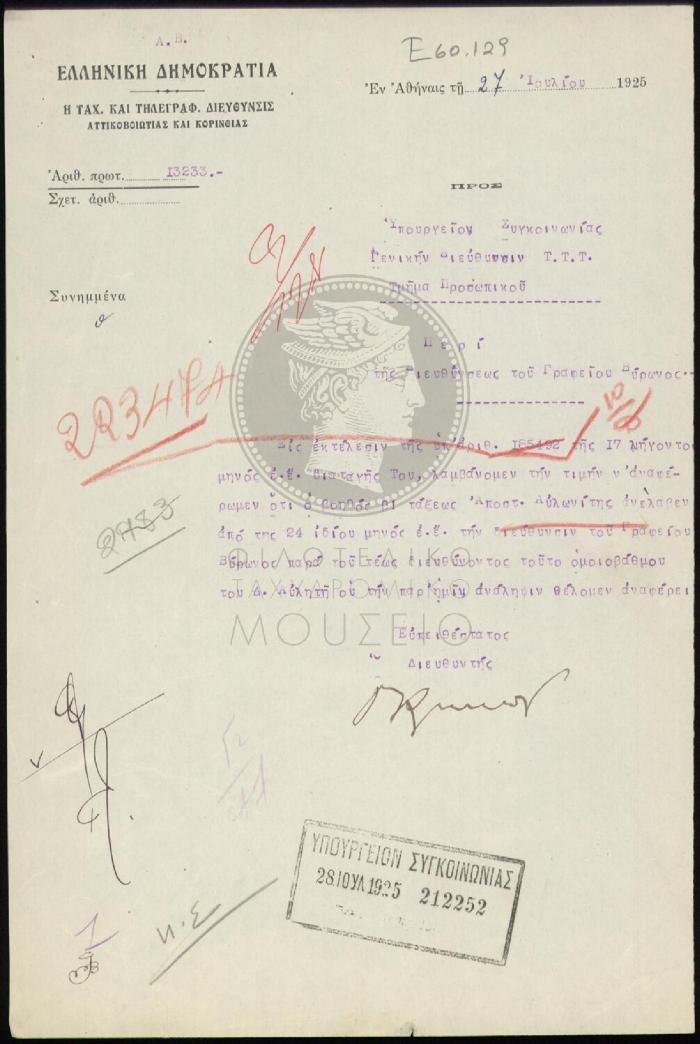 Α.Β.
Ε60.129
ΕΛΛΗΝΙΚΗ ΔΗΜΟΚΡΑΤΙΑ
Η ΤΑΧ. ΚΑΙ ΤΗΛΕΓΡΑΦ. ΔΙΕΥΘΥΝΣΙΣ
ΑΤΤΙΚΟΒΟΙΩΤΙΑΣ ΚΑΙ ΚΟΡΙΝΘΙΑΣ
Ἐν Ἀθήναις τῇ 27 Ἰουλίου 1925
Ἀριθ. πρωτ. 13233.-
Σχετ. ἀριθ.
ΠΡΟΣ
Ὑπουργεῖον Συγκοινωνίας
Γενικήν Διεύθυνσιν Τ.Τ.Τ.
Τμῆμα Προσωπικοῦ
Συνημμένα
Περί
τῆς Διευθύνσεως τοῦ Γραφείου Βύρωνος.-
223474
10/8
Εἰς ἐκτέλεσιν τῆς ὑπ'ἀριθ. 185492 τῆς 17 λήγοντο
μηνός ἐ.ἔ. Διαταγῆς Του, λαμβάνομεν τήν τιμήν ν'ἀναφέ-
ρωμεν ὅτι ὁ βοηθός Βί τάξεως Ἀποστ. Αὐλωνίτης ἀνέλαβεν
ἀπό τῆς 24 ἰδίου μηνός ἐ.ἔ. τήν Διεύθυνσιν τοῦ Γραφείου
Βύρωνος παρά τοῦ τέως Διευθύνοντος τοῦτο ὁμοιοβάθμου
του Δ. Αὐλητῆ οὗ τήν παρ'ἡμῖν ἀνάληψιν θέλομεν ἀναφέρει
2783
ΦΙΛΟΤΕΛΙΚΟ
ΤΑΧΥΔΡΟΜΙΚΟ
ΜΟΥΣΕΙΟ
Εὐπειθέστατος
Ὁ Διευθυντής
ΥΠΟΥΡΓΕΙΟΝ ΣΥΓΚΟΙΝΩΝΙΑΣ
28.ΙΟΥΛ 1925 212252